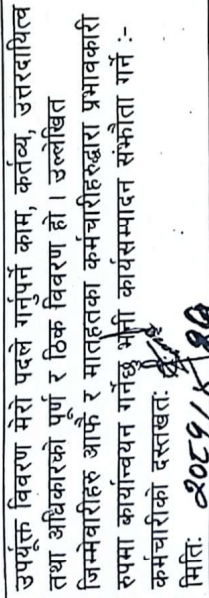 उपर्यूक्त विवरण मेरो पदले गर्नुपर्ने काम, कर्तव्य, उत्तरदायित्व
तथा अधिकारको पूर्ण र ठिक विवरण हो । उल्लेखित
जिम्मेवारीहरु आफैं र मातहतका कर्मचारीहरुद्धारा प्रभावकारी
रुपमा कार्यान्वयन गर्नेछु भनी कार्यसम्पादन संझौता गर्ने :-
कर्मचारीको दस्तखतः
मितिः २०८१/५/